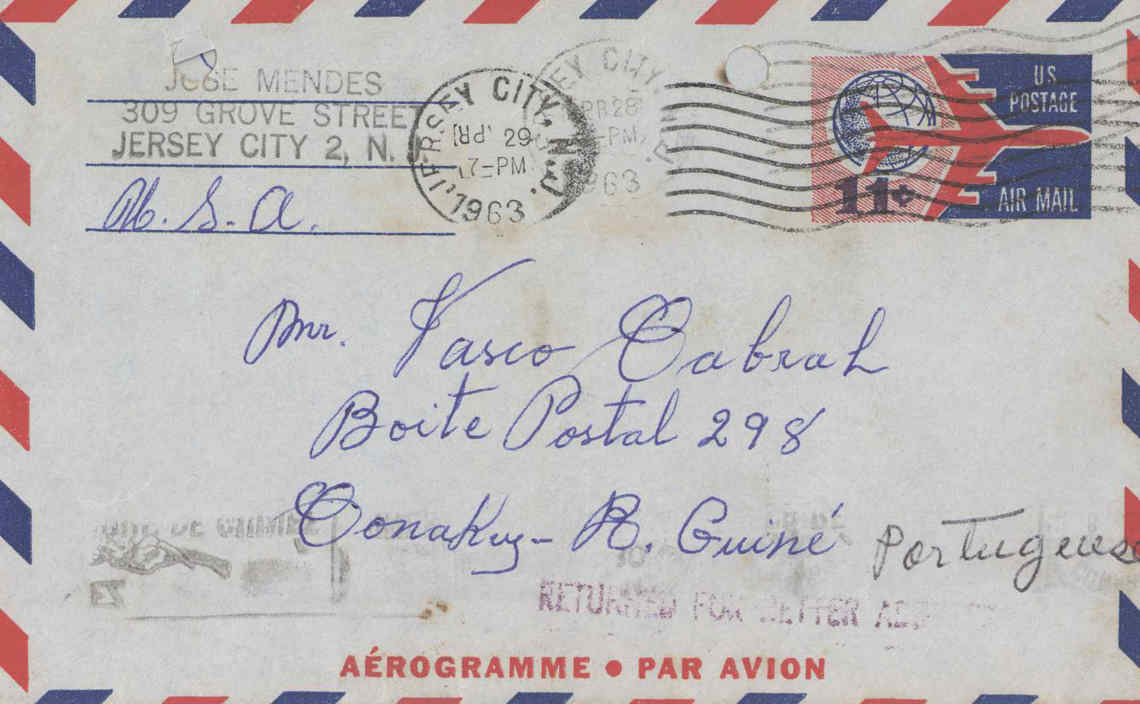 JOSE MENDES
309 GROVE STREET
JERSEY CITY 2, N.
U.S.A.
JERSEY CITY, N.J.
APR 29
7-PM
1963
EY CITY
PR 28
-PM
1963
US
POSTAGE
11¢
AIR MAIL
Mr. Vasco Cabral
Boite Postal 298
Conakry - R. Guiné Portuguese
RETURNED FOR BETTER ADD
AÉROGRAMME • PAR AVION